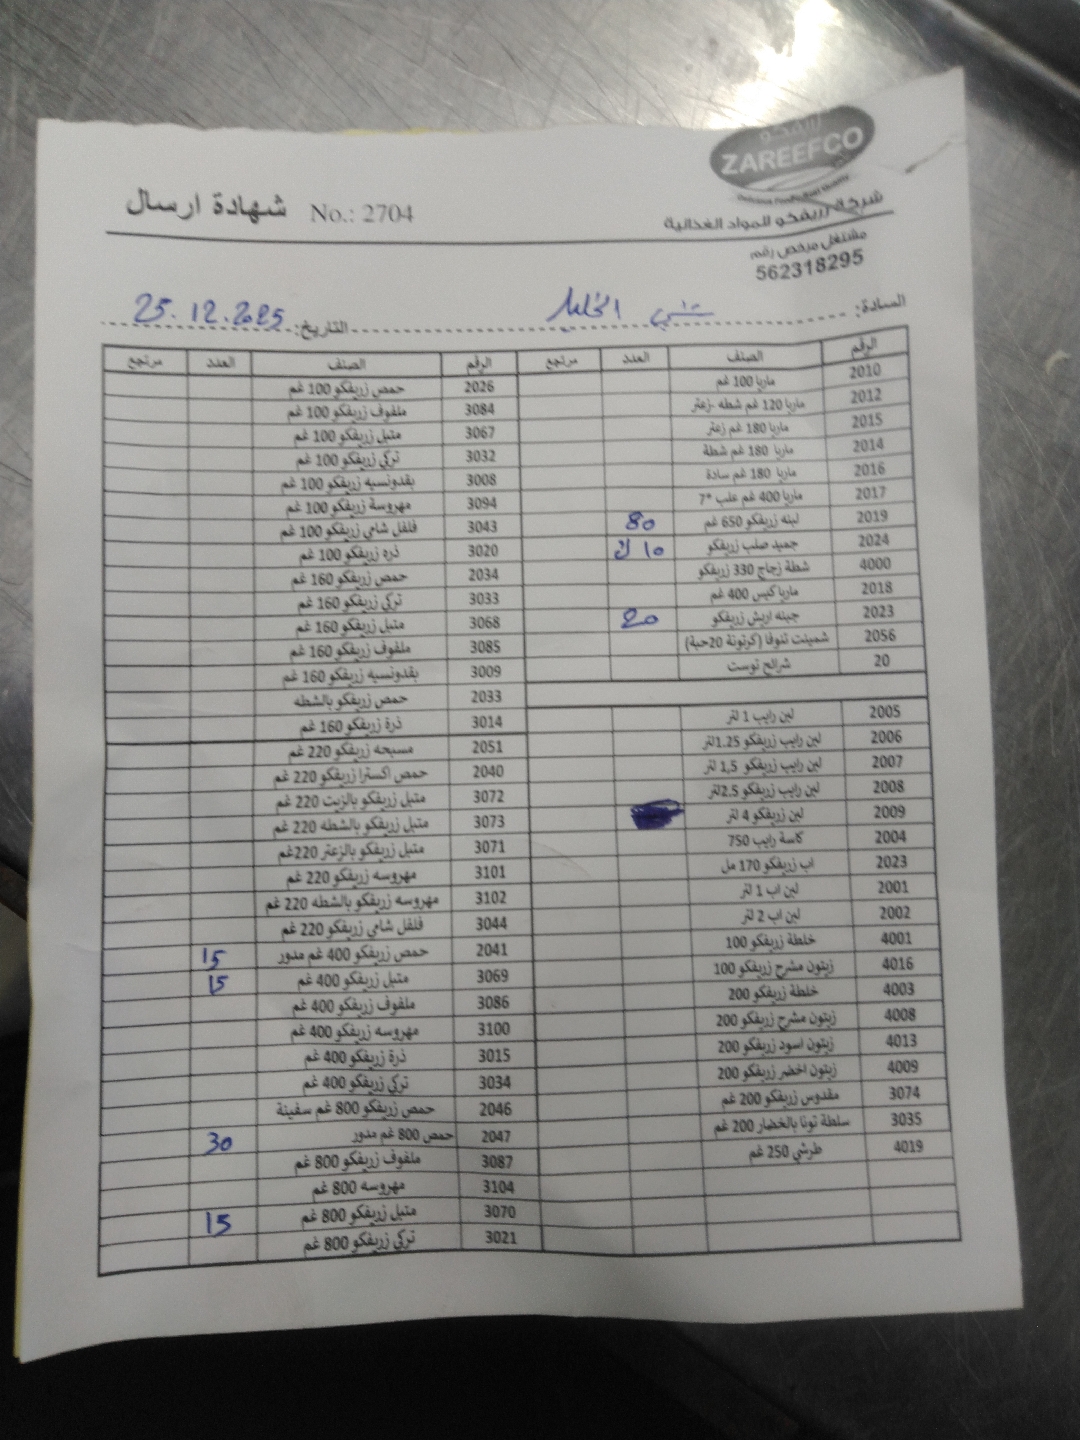 زريفكو
ZAREEFCO
شركة زريفكو للمواد الغذائية
مشتغل مرخص رقم
562318295
شهادة ارسال No.: 2704
السادة: الخليل
التاريخ: 25.12.2025
الرقم الصنف العدد مرتجع
2010 ماريا 100 غم
2012 ماريا 120 غم شطه -زعتر
2015 ماريا 180 غم زعتر
2014 ماريا 180 غم شطة
2016 ماريا 180 غم سادة
2017 ماريا 400 غم علب *7
2019 لبنه زريفكو 650 غم 80
2024 جميد صلب زريفكو 10 ك
4000 شطة زجاج 330 زريفكو
2018 ماريا كيس 400 غم
2023 جبنه اريش زريفكو 20
2056 شمينت تنوفا (كرتونة 20حبة)
20 شرائح توست
2005 لبن رايب 1 لتر
2006 لبن رايب زريفكو 1.25لتر
2007 لبن رايب زريفكو 1,5 لتر
2008 لبن رايب زريفكو 2.5لتر
2009 لبن زريفكو 4 لتر
2004 كاسة رايب 750
2023 اب زريفكو 170 مل
2001 لبن اب 1 لتر
2002 لبن اب 2 لتر
4001 خلطة زريفكو 100
4016 زيتون مشرح زريفكو 100
4003 خلطة زريفكو 200
4008 زيتون مشرح زريفكو 200
4013 زيتون اسود زريفكو 200
4009 زيتون اخضر زريفكو 200
3074 مقدوس زريفكو 200 غم
3035 سلطة تونا بالخضار 200 غم
4019 طرشي 250 غم
الرقم الصنف العدد مرتجع
2026 حمص زريفكو 100 غم
3084 ملفوف زريفكو 100 غم
3067 متبل زريفكو 100 غم
3032 تركي زريفكو 100 غم
3008 بقدونسيه زريفكو 100 غم
3094 مهروسة زريفكو 100 غم
3043 فلفل شامي زريفكو 100 غم
3020 ذره زريفكو 100 غم
2034 حمص زريفكو 160 غم
3033 تركي زريفكو 160 غم
3068 متبل زريفكو 160 غم
3085 ملفوف زريفكو 160 غم
3009 بقدونسيه زريفكو 160 غم
2033 حمص زريفكو بالشطه
3014 ذرة زريفكو 160 غم
2051 مسبحه زريفكو 220 غم
2040 حمص اكسترا زريفكو 220 غم
3072 متبل زريفكو بالزيت 220 غم
3073 متبل زريفكو بالشطه 220 غم
3071 متبل زريفكو بالزعتر 220غم
3101 مهروسه زريفكو 220 غم
3102 مهروسه زريفكو بالشطه 220 غم
3044 فلفل شامي زريفكو 220 غم
2041 حمص زريفكو 400 غم مدور 15
3069 متبل زريفكو 400 غم 15
3086 ملفوف زريفكو 400 غم
3100 مهروسه زريفكو 400 غم
3015 ذرة زريفكو 400 غم
3034 تركي زريفكو 400 غم
2046 حمص زريفكو 800 غم سفينة
2047 حمص 800 غم مدور 30
3087 ملفوف زريفكو 800 غم
3104 مهروسه 800 غم
3070 متبل زريفكو 800 غم 15
3021 تركي زريفكو 800 غم